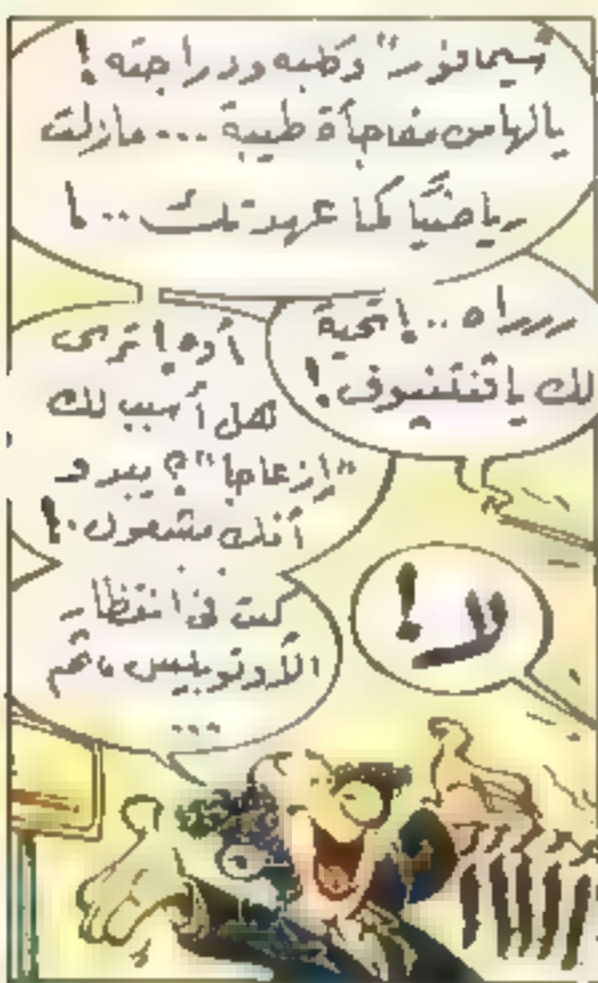 "سيمافور" وكلبه ودراجته!
يالها من مفاجأة طيبة... مازلت
رياضيًا كما عهدتك..!
رررراه..! تحية
لك يا فنتنسوف!
أوه! ترى
هل أسبب لك
"إزعاجا"؟ يبدو
أنك مشغول.!
كنت في انتظار
الأوتوبيس، ثم
...
لا!